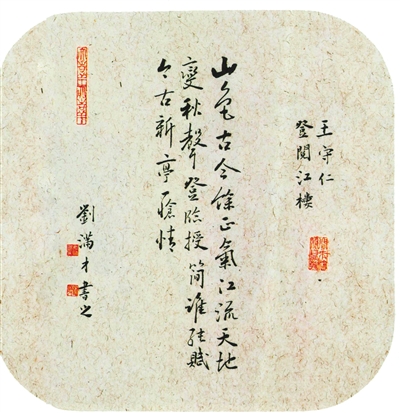 王守仁
登閱江樓
山色古今餘正氣江流天地
變秋聲登臨授簡誰能賦
千古新亭一愴情
劉滿才書之